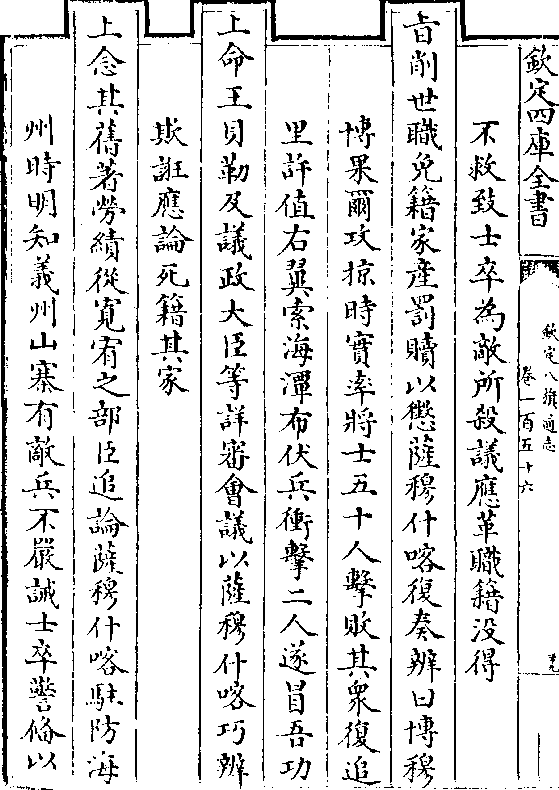 欽定四庫全書
欽定八旗通志
卷一百五十六
不救致士卒為敵所殺議應革職籍没得
旨削世職免籍家産罰贖以懲薩穆什喀復奏辨曰博穆
博果爾攻掠時實率將士五十人擊敗其衆復追
里許值右翼索海潭布伏兵衝擊二人遂冒吾功
上命王貝勒及議政大臣等詳審會議以薩穆什喀巧辨
欺誑應論死籍其家
上念其舊著勞績從寛宥之部臣追論薩穆什喀駐防海
州時明知義州山寨有敵兵不嚴誡士卒警偹以